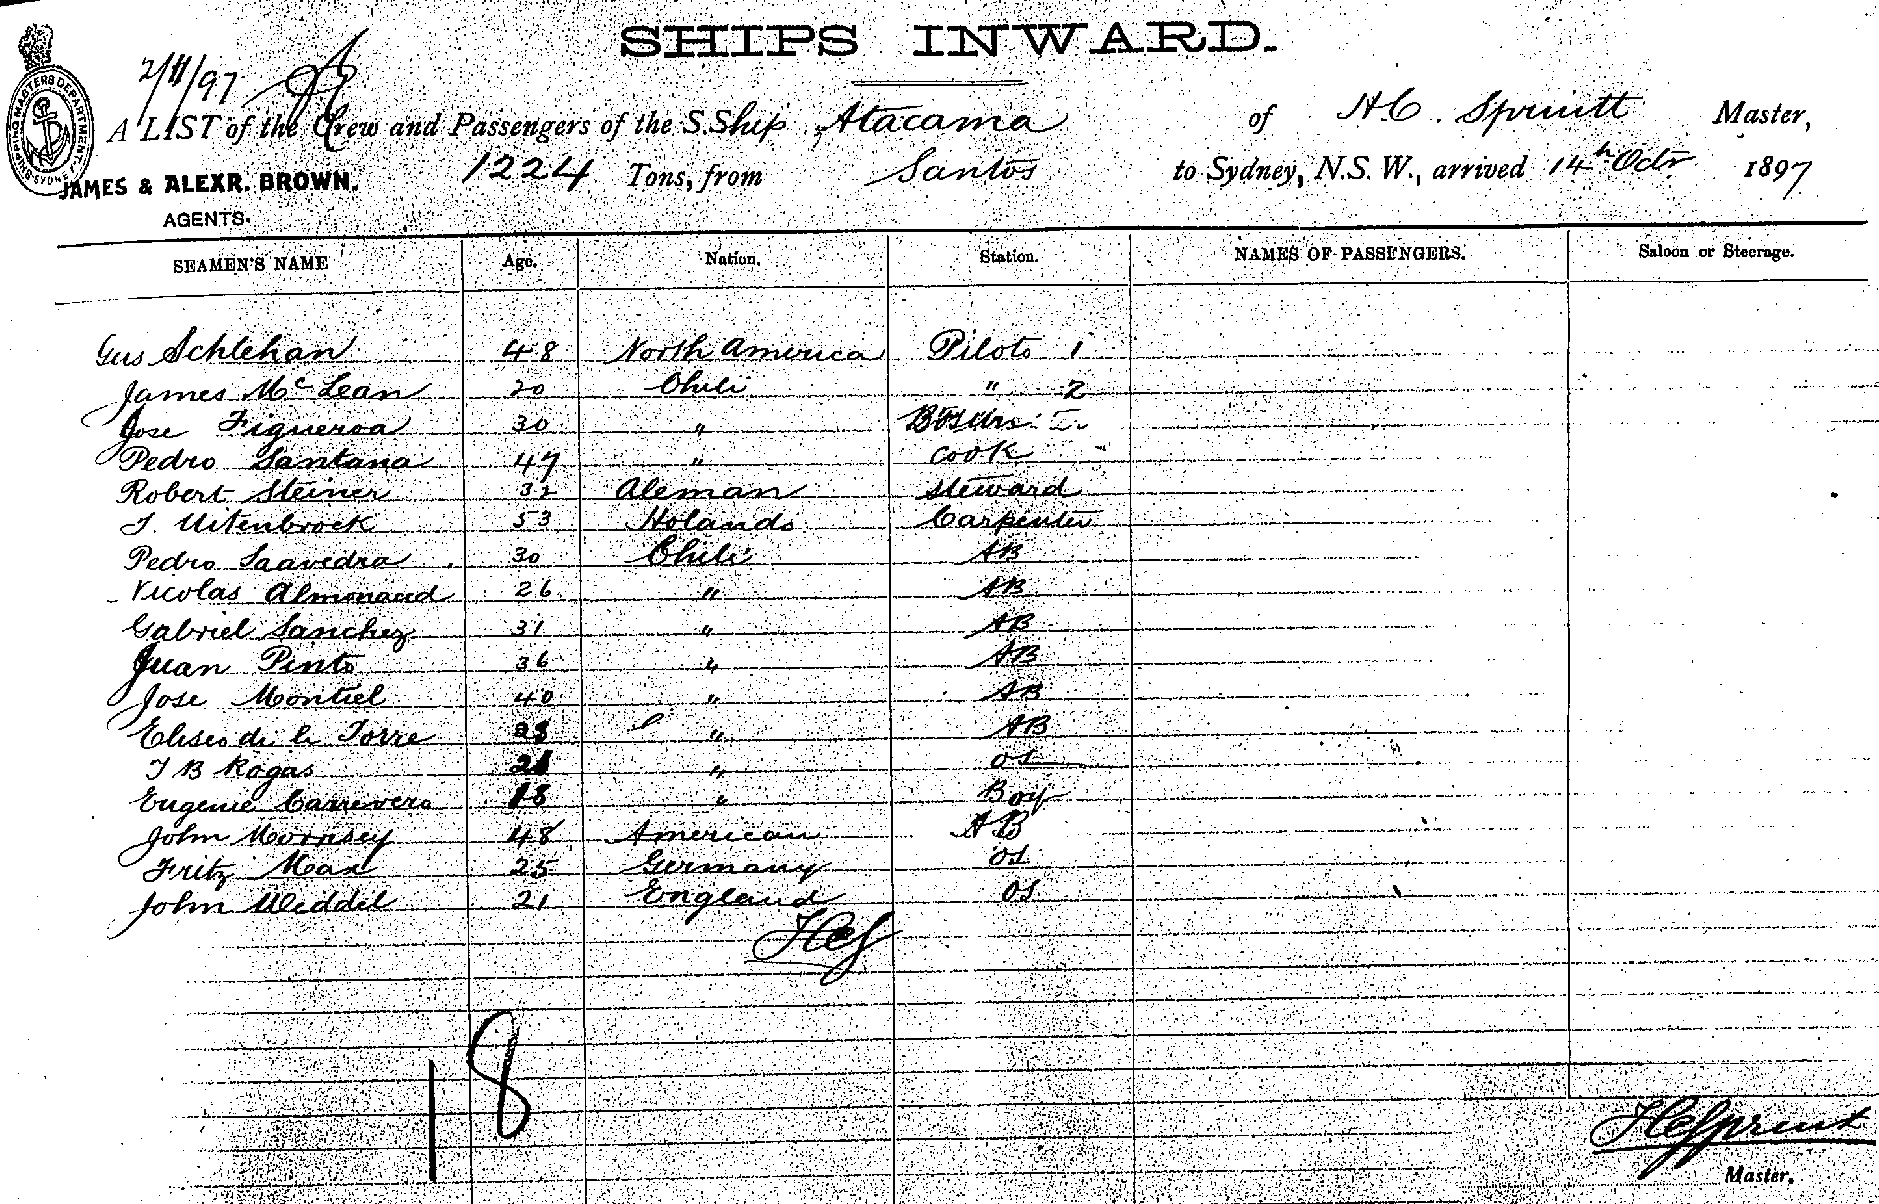 SHIPS INWARD.
2/11/97
SHIPPING MASTERS DEPARTMENT. SYDNEY
A LIST of the Crew and Passengers of the S.Ship Atacama of H.C. Spruitt Master,
JAMES & ALEXR. BROWN. 1224 Tons, from Santos to Sydney, N.S.W., arrived 14th Octr 1897
AGENTS.
SEAMEN'S NAME Age. Nation. Station. NAMES OF PASSENGERS. Saloon or Steerage.
Gus Schlehan 48 North America Piloto 1
James McLean 20 Chili " 2
Jose Figueroa 30 "
Pedro Santana 47 " cook
Robert Steiner 32 Aleman steward
Uitenbroek 53 Holands Carpenter
Pedro Saavedra 30 Chili AB
Nicolas Almonacid 26 " AB
Gabriel Sanchez 31 " AB
Juan Pinto 36 " AB
Jose Montiel 40 " AB
Eliseo de la Torre " AB
Rogas 21 " OS
Eugenie Carrevero 18 " Boy
John Mornsey 48 American AB
Fritz Max 25 Germany OS
John Weddel 21 England OS
HCS
18
HCSpruit
Master.